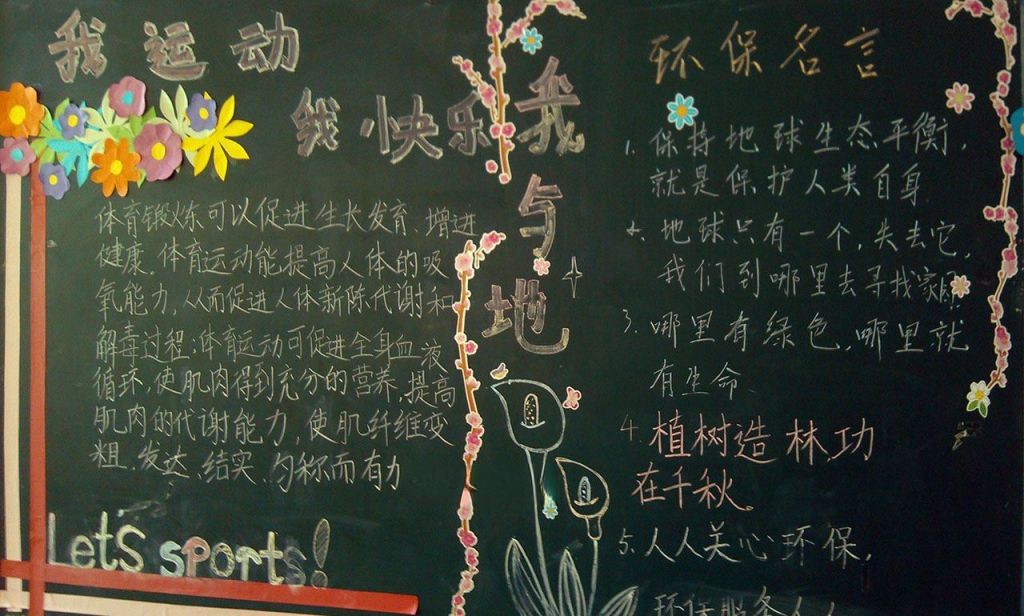 我运动
我快乐
体育锻炼可以促进生长发育、增进
健康.体育运动能提高人体的吸
氧能力,从而促进人体新陈代谢和
解毒过程;体育运动可促进全身血液
循环,使肌肉得到充分的营养,提高
肌肉的代谢能力,使肌纤维变
粗、发达、结实、匀称而有力
Lets sports!
我与地
环保名言
1. 保持地球生态平衡,
就是保护人类自身
2. 地球只有一个,失去它,
我们到哪里去寻找家园
3. 哪里有绿色,哪里就
有生命.
4. 植树造林,功
在千秋.
5. 人人关心环保,
环保服务人人